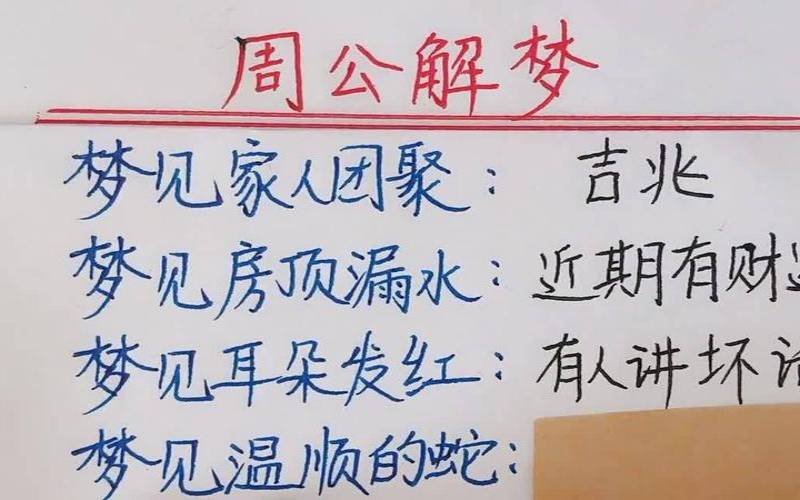 周公解梦
梦见家人团聚: 吉兆
梦见房顶漏水: 近期有财
梦见耳朵发红: 有人讲坏
梦见温顺的蛇: